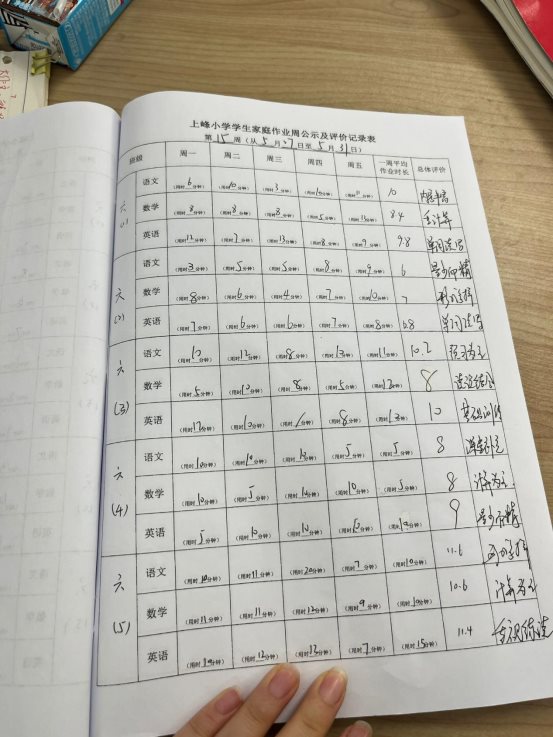 上峰小学学生家庭作业周公示及评价记录表
第 15 周（从 5 月 27 日至 5 月 31 日）
班级 周一 周二 周三 周四 周五 一周平均作业时长 总体评价
六(1) 语文 (用时 6 分钟) (用时 10 分钟) (用时 3 分钟) (用时 分钟) (用时 11 分钟) 10
数学 (用时 8 分钟) (用时 8 分钟) (用时 8 分钟) (用时 5 分钟) (用时 13 分钟) 8.4
英语 (用时 12 分钟) (用时 7 分钟) (用时 13 分钟) (用时 8 分钟) (用时 7 分钟) 9.8 单词读写
六(2) 语文 (用时 3 分钟) (用时 5 分钟) (用时 5 分钟) (用时 8 分钟) (用时 9 分钟) 6 量少而精
数学 (用时 8 分钟) (用时 6 分钟) (用时 4 分钟) (用时 7 分钟) (用时 10 分钟) 7
英语 (用时 7 分钟) (用时 6 分钟) (用时 6 分钟) (用时 7 分钟) (用时 8 分钟) 6.8 单词读写
六(3) 语文 (用时 10 分钟) (用时 12 分钟) (用时 8 分钟) (用时 13 分钟) (用时 11 分钟) 10.2
数学 (用时 5 分钟) (用时 10 分钟) (用时 8 分钟) (用时 5 分钟) (用时 12 分钟) 8
英语 (用时 12 分钟) (用时 10 分钟) (用时 分钟) (用时 8 分钟) (用时 13 分钟) 10
六(4) 语文 (用时 10 分钟) (用时 10 分钟) (用时 10 分钟) (用时 5 分钟) (用时 5 分钟) 8
数学 (用时 10 分钟) (用时 5 分钟) (用时 10 分钟) (用时 10 分钟) (用时 5 分钟) 8 计算为主
英语 (用时 5 分钟) (用时 10 分钟) (用时 10 分钟) (用时 10 分钟) (用时 10 分钟) 9 量少而精
六(5) 语文 (用时 10 分钟) (用时 11 分钟) (用时 20 分钟) (用时 7 分钟) (用时 10 分钟) 11.6
数学 (用时 11 分钟) (用时 11 分钟) (用时 12 分钟) (用时 9 分钟) (用时 10 分钟) 10.6 计算为主
英语 (用时 10 分钟) (用时 12 分钟) (用时 13 分钟) (用时 7 分钟) (用时 15 分钟) 11.4